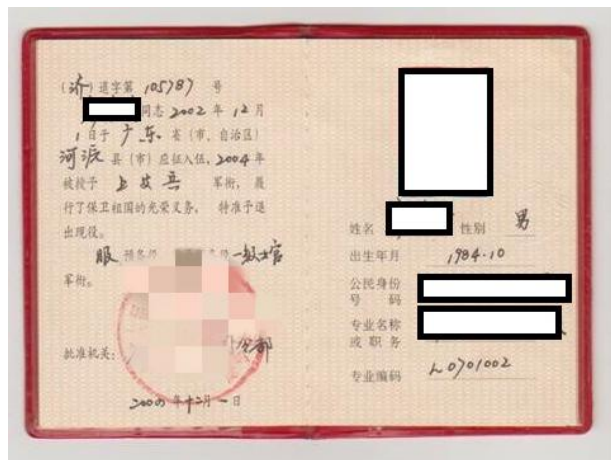 (济)退字第 105787 号
同志 2002 年 12 月
1 日于 广东 省(市、自治区)
河源 县(市)应征入伍,2004 年
被授于 上等兵 军衔,履
行了保卫祖国的光荣义务,特准予退
出现役。
服 预备役 一级士官
军衔。
批准机关:
年 十二月 一 日
姓名 性别 男
出生年月 1984.10
公民身份
号 码
专业名称
或 职 务
专业编码 L0701002